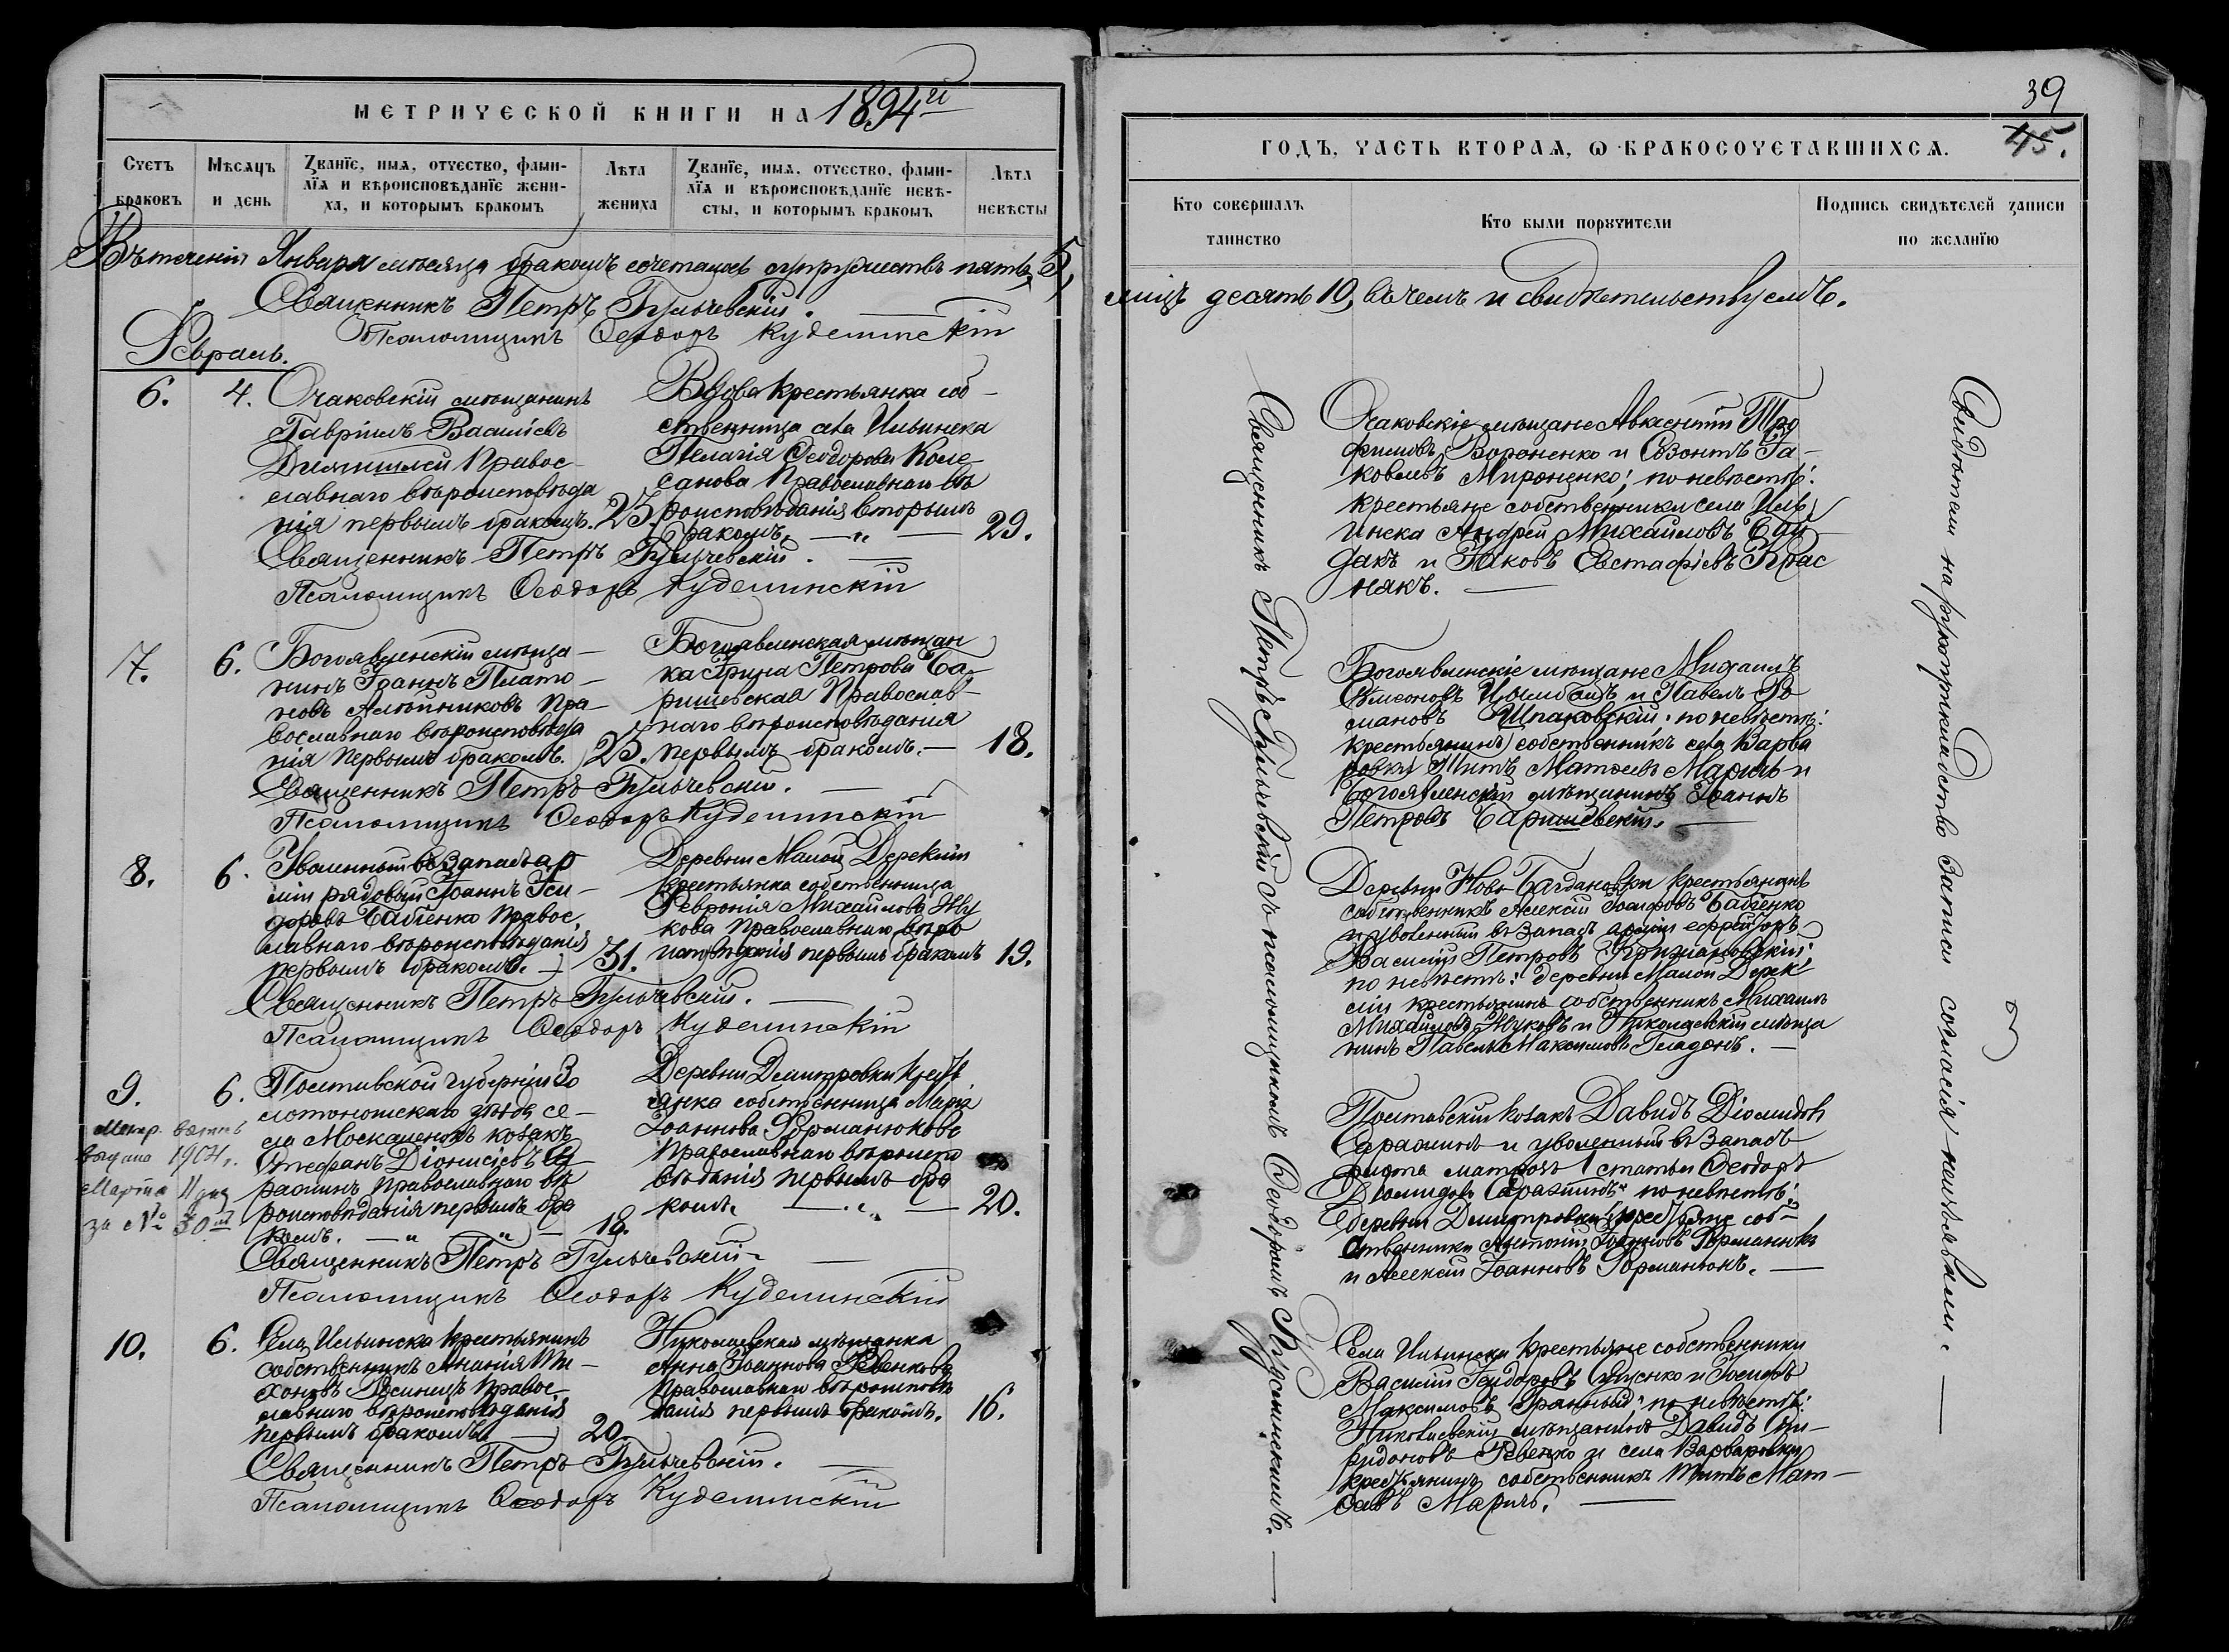 МЕТРИЧЕСКОЙ КНИГИ НА 1894й
Счетъ браковъ
Мѣсяцъ и день
Званїе, имя, отчество, фами-
лїя и вѣроисповѣданїе жени-
ха, и которымъ бракомъ
Лѣта жениха
Званїе, имя, отчество, фами-
лїя и вѣроисповѣданїе невѣ-
сты, и которымъ бракомъ
Лѣта невѣсты
Въ теченіи Января мѣсяца бракомъ сочеталось супружествъ пять, 5,
Священникъ Петръ Гульчевскій.
Псаломщикъ Ѳеодоръ Куделинскій
Февраль.
6. 4.
Очаковскій мѣщанинъ
Гавріилъ Василіевъ
Правос-
лавнаго вѣроисповѣда
нія первымъ бракомъ. 23.
Вдова крестьянка соб-
ственница села Ильинска
Пелагія Ѳеодорова Коле-
санова Православнаго вѣ
роисповѣданія вторымъ
бракомъ. 29.
Священникъ Петръ Гульчевскій.
Псаломщикъ Ѳеодоръ Куделинскій
7. 6.
Богоявленскій мѣща-
нинъ Іоаннъ Плато-
новъ Алѣйниковъ Пра-
вославнаго вѣроисповѣда
нія первымъ бракомъ. 23.
Богоявленская мѣщан
ка Ирина Петрова Ба-
ришевская Православ-
наго вѣроисповѣданія
первымъ бракомъ. 18.
Священникъ Петръ Гульчевскій.
Псаломщикъ Ѳеодоръ Куделинскій
8. 6.
Уволенный въ запасъ ар
міи рядовой Іоаннъ Иси-
доровъ Бабченко Правос
лавнаго вѣроисповѣданія
первымъ бракомъ. 31.
Деревни Малой Дерекліи
крестьянка собственница
Февронія Михайлова Жу
кова Православнаго вѣро
исповѣданія первымъ бракомъ 19.
Священникъ Петръ Гульчевскій.
Псаломщикъ Ѳеодоръ Куделинскій
9. 6.
Метр. вапись
выдана 1904 г.
Марта 11 дня
за № 30м
Полтавской губерніи Зо
лотоношскаго уѣзда се-
ла Москаленокъ козакъ
Стефанъ Діонисіевъ Са
рапинъ Православнаго вѣ
роисповѣданія первымъ бра
комъ. 18.
Деревни Димитровки крест
янка собственница Марія
Іоаннова Форманюкова
Православнаго вѣроиспо
вѣданія первымъ бра
комъ. 20.
Священникъ Петръ Гульчевскій
Псаломщикъ Ѳеодоръ Куделинскій
10. 6.
Села Ильинска крестьянинъ
собственникъ Ананія Ти-
хоновъ Правос-
лавнаго вѣроисповѣданія
первымъ бракомъ 20.
Николаевская мѣщанка
Анна Іоаннова Ревенкова
Православнаго вѣроисповѣ
данія первымъ бракомъ. 16.
Священникъ Петръ Гульчевскій.
Псаломщикъ Ѳеодоръ Куделинскій
39
45.
ГОДЪ, ЧАСТЬ ВТОРАЯ, Ѡ БРАКОСОЧЕТАВШИХСЯ.
Кто совершалъ таинство
Кто были поручители
Подпись свидѣтелей записи по желанїю
лицъ десять 10, въ чемъ и свидѣтельствуемъ.
Священникъ Петръ Гульчевскій съ псаломщикомъ Ѳеодоромъ Куделинскимъ.
Очаковскіе мѣщане Авксентій Тро
фимовъ Вороненко и Созонтъ Іа-
ковлевъ Мироненко; по невѣстѣ:
крестьяне собственники села Иль
инска Андрей Михайловъ Бай
дакъ и Іаковъ Евстафіевъ Крас
някъ.
Богоявленскіе мѣщане Михаилъ
Симеоновъ Цымбалъ и Павелъ Ро
мановъ Шпаковскій; по невѣстѣ:
крестьянинъ собственникъ села Варва
ровки Титъ Матѳеевъ Маричъ и
Богоявленскій мѣщанинъ Іоаннъ
Петровъ Баришевскій.
Деревни Ново-Богдановки крестьянинъ
собственникъ Алексій Іосифовъ Бабченко
и уволенный въ запасъ арміи ефрейторъ
Василій Петровъ Крижановскій;
по невѣстѣ: деревни Малой Дерек
ліи крестьянинъ собственникъ Михаилъ
Михайловъ Жуковъ и Николаевскій мѣща
нинъ Павелъ Максимовъ Гладонъ.
Полтавскій козакъ Давидъ Діомидовъ
Сарапинъ и уволенный въ запасъ
флота матрозъ 1 статьи Ѳеодоръ
Діомидовъ Сарапинъ; по невѣстѣ:
деревни Димитровки крестьяне соб-
ственники Антоній Іоанновъ Форманюкъ
и Алексій Іоанновъ Форманюкъ.
Села Ильинска крестьяне собственники
Василій и Іосифъ
Максимовъ по невѣстѣ:
Николаевскій мѣщанинъ Давидъ Спи-
ридоновъ Ревенко и села Варваровки
крестьянинъ собственникъ Титъ Мат-
ѳеевъ Маричъ.
Свидѣтели на рукоприкладство записи согласія не изъявили.